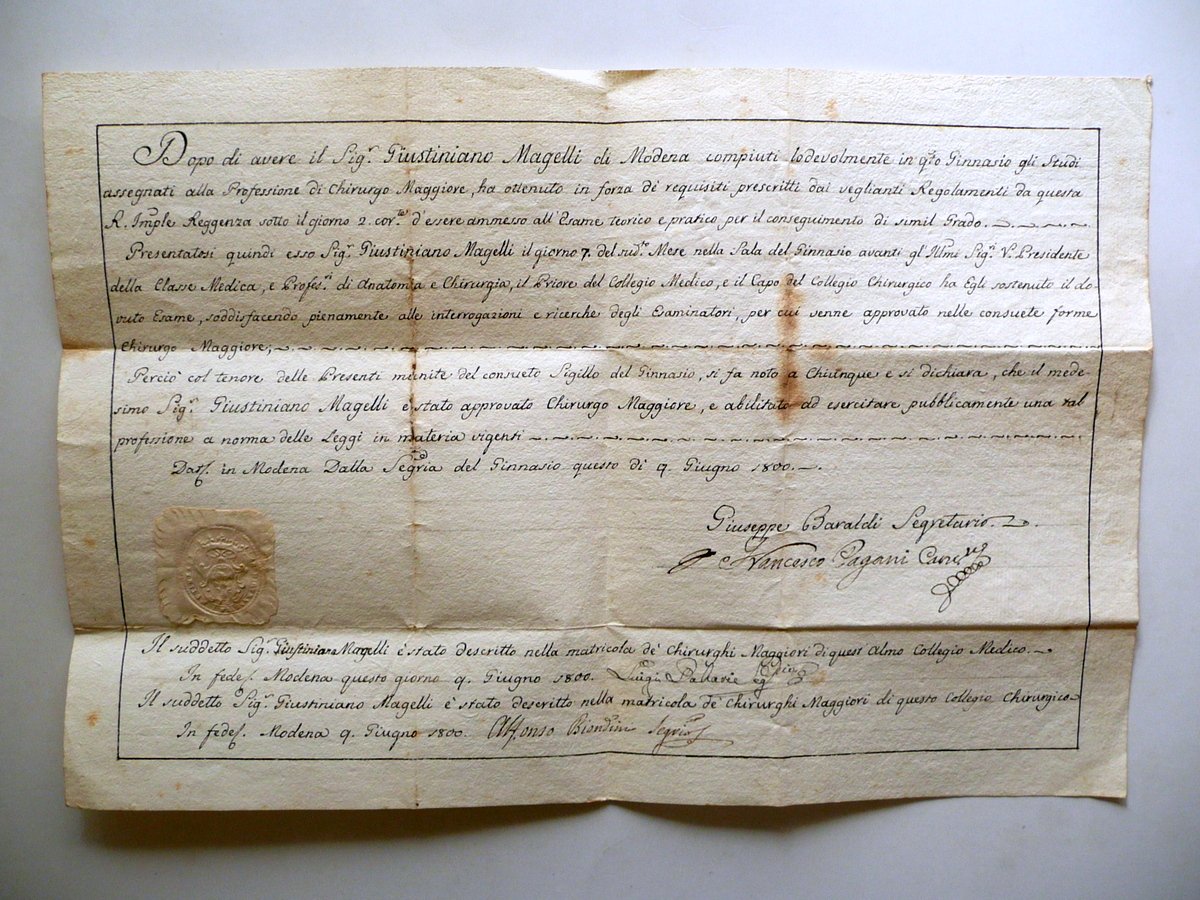 Dopo di avere il Sigr. Giustiniano Magelli di Modena compiuti lodevolmente in qto Ginnasio gli Studi
assegnati alla Professione di Chirurgo Maggiore, ha ottenuto in forza de' requisiti prescritti dai veglianti Regolamenti da questa
R. Imple Reggenza sotto il giorno 2. corte d'essere ammesso all'Esame teorico e pratico per il conseguimento di simil Grado.
Presentatosi quindi esso Sigr. Giustiniano Magelli il giorno 7. del sudto Mese nella Sala del Ginnasio avanti gl'Illmi Sigri V. Presidente
della Classe Medica, e Profesri di Anatomia e Chirurgia, il Priore del Collegio Medico, e il Capo del Collegio Chirurgico ha Egli sostenuto il do-
vuto Esame, soddisfacendo pienamente alle interrogazioni e ricerche degli Esaminatori, per cui venne approvato nelle consuete forme
Chirurgo Maggiore,
Perciò col tenore delle Presenti munite del consueto Sigillo del Ginnasio, si fa noto a Chiunque e si dichiara, che il mede-
simo Sigr. Giustiniano Magelli è stato approvato Chirurgo Maggiore, e abilitato ad esercitare pubblicamente una tal
professione a norma delle Leggi in materia vigenti
Dat. in Modena Dalla Segria del Ginnasio questo dì 9. Giugno 1800.
Giuseppe Baraldi Segretario
Francesco Pagani
Il suddetto Sigr. Giustiniano Magelli è stato descritto nella matricola de' Chirurghi Maggiori di quest'Almo Collegio Medico.
In fede. Modena questo giorno 9. Giugno 1800. Luigi
Il suddetto Sigr. Giustiniano Magelli è stato descritto nella matricola de' Chirurghi Maggiori di questo Collegio Chirurgico
In fede. Modena 9. Giugno 1800. Alfonso Biondini Segrio